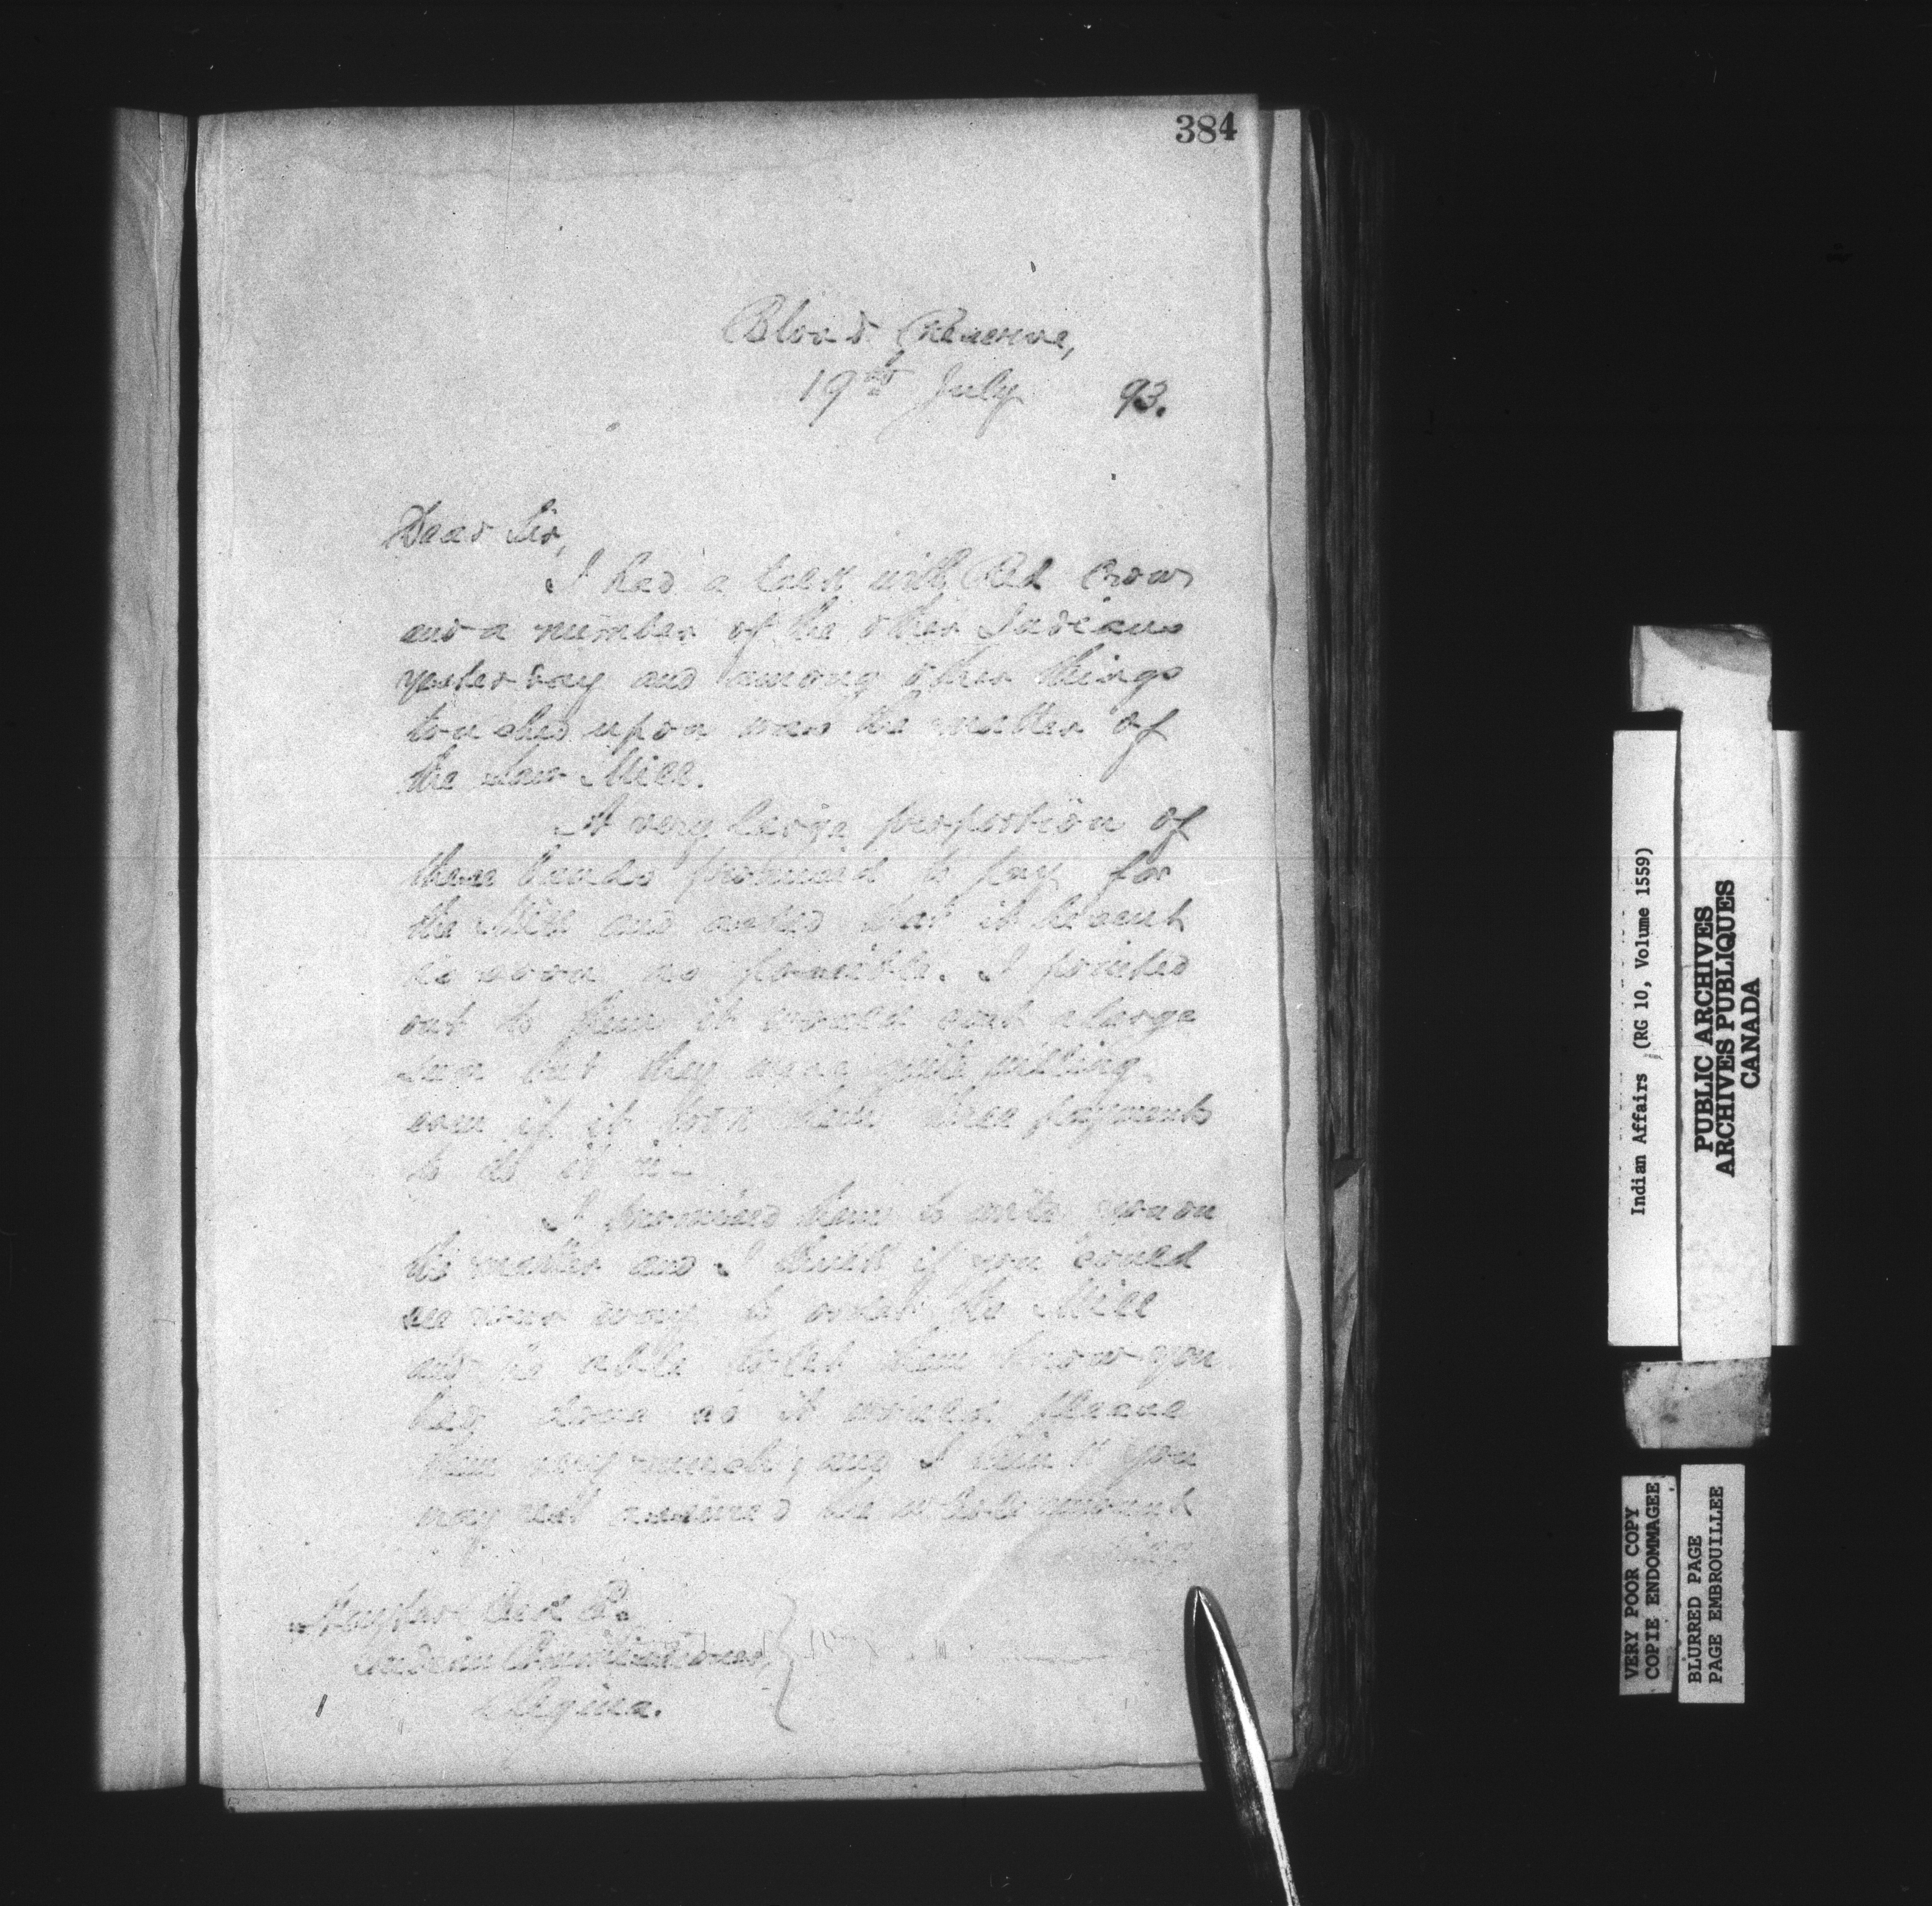 384
Blood Reserve,
19th July 93.
Dear Sir,
I had a talk with Red Crow
and a number of the other Indians
yesterday and among other things
touched upon was the matter of
the Saw Mill.
A very large proportion of
these bands promised to pay for
the Mill and asked that it be sent
as soon as possible. I pointed
out to them it would cost a large
sum but they were quite willing
even if it took them three payments
to do it in
I promised them to write you on
the matter and I think if you could
see your way to order the Mill
and be able to let them know you
had done so it would please
them very much, and I think you
may rest assured the whole amount
Hayter Reed
Indian Commissioner,
Regina.
Indian Affairs (RG 10, Volume 1559)
PUBLIC ARCHIVES
ARCHIVES PUBLIQUES
CANADA
VERY POOR COPY
COPIE ENDOMMAGEE
BLURRED PAGE
PAGE EMBROUILLEE